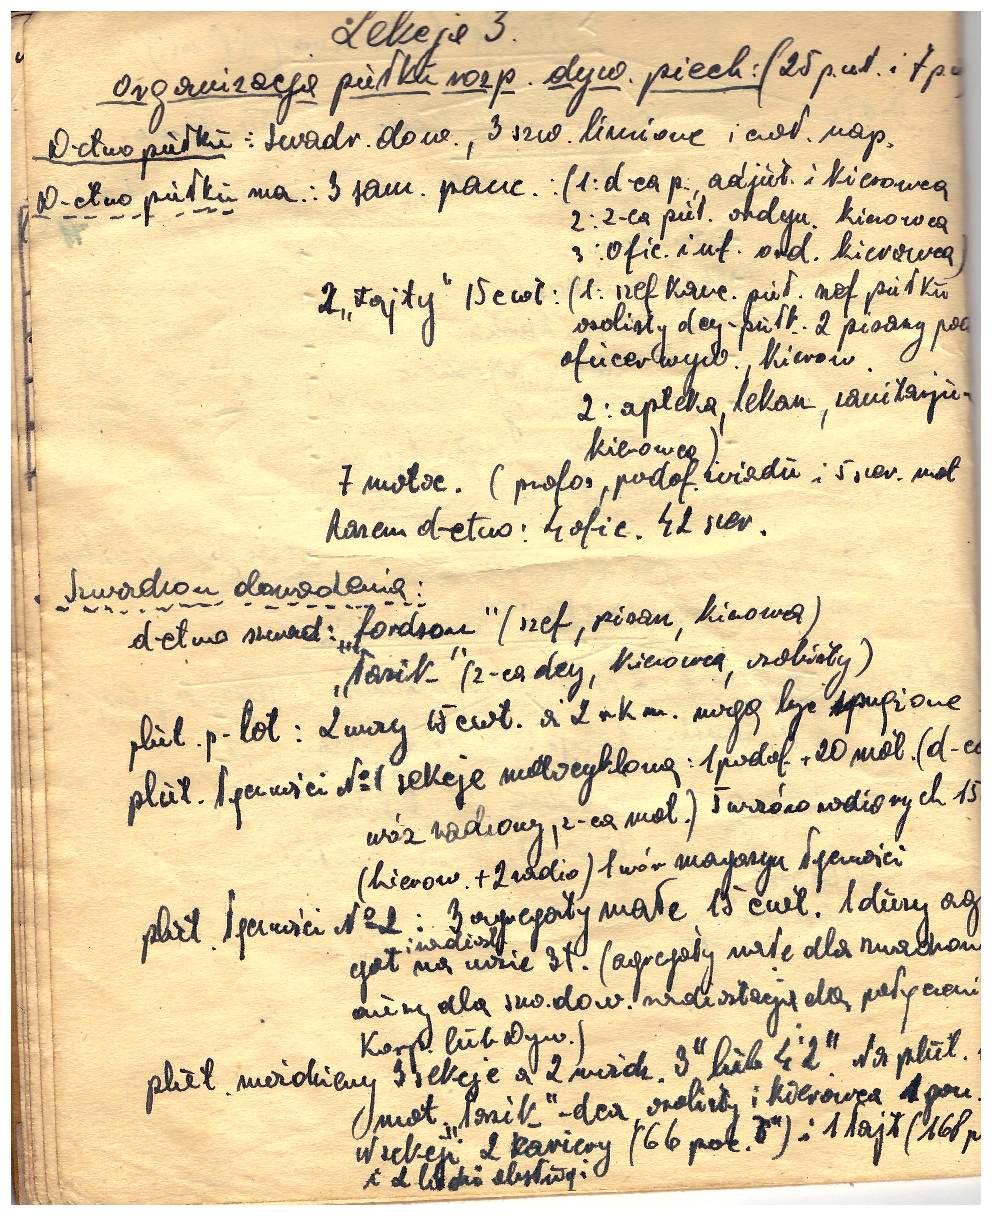 Lekcja 3.
Organizacja pułku rozp. dyw. piech: (25 p.uł. i 7 p.
D-ctwo pułku: szwadr. dow., 3 szw. liniowe i cwd. nap.
D-ctwo pułku ma: 3 sam. panc.: (1: d-ca p., adjut. i kierowca
2: z-ca puł. ordyn. kierowca
3: Ofic. inf. ord. kierowca)
2 „Łajty" 15 cwt: (1: szef kanc. puł. szef pułku
osobisty dcy-pułk. 2 pisarzy
oficer wyw., kierow.
2: apteka, lekarz, sanitarju-
kierowca)
7 motoc. (profos, podof. wiadu i 5 szer. mot
Razem d-ctwo: 4 ofic. 42 szer.
Szwadron dowodzenia:
d-ctwo szwad: „Fordson" (szef, pisarz, kierowca)
„Łazik" (z-ca dcy, kierowca, osobisty)
plut. p-lot: 2 wozy 15 cwt. a 2 rkm. mogą być sprzężone
plut. łączności №1 sekcję motocyklową: 1 podof. + 20 mot. (d-ca
wóz radiowy, z-ca mot.) 5 wozów radiowych 15
(kierow. + 2 radio) 1 wóz magazyn łączności
plut. łączności №2: 3 agregaty małe 15 cwt. 1 duży ag
gat i radiost. na wozie 3t. (agregaty małe dla szwadron
duży dla szw. dow. radiostacja dla połączeni
Korp. lub Dyw.)
plut. moździerzy 3 sekcje a 2 moźdz. 3" lub 4'2" Na plut.
mot „łazik" - dca, osobisty i kierowca 1
W sekcji 2 kariery (66 poc. 3") i 1 łajt (168 p
i 2 ludzi obsługi